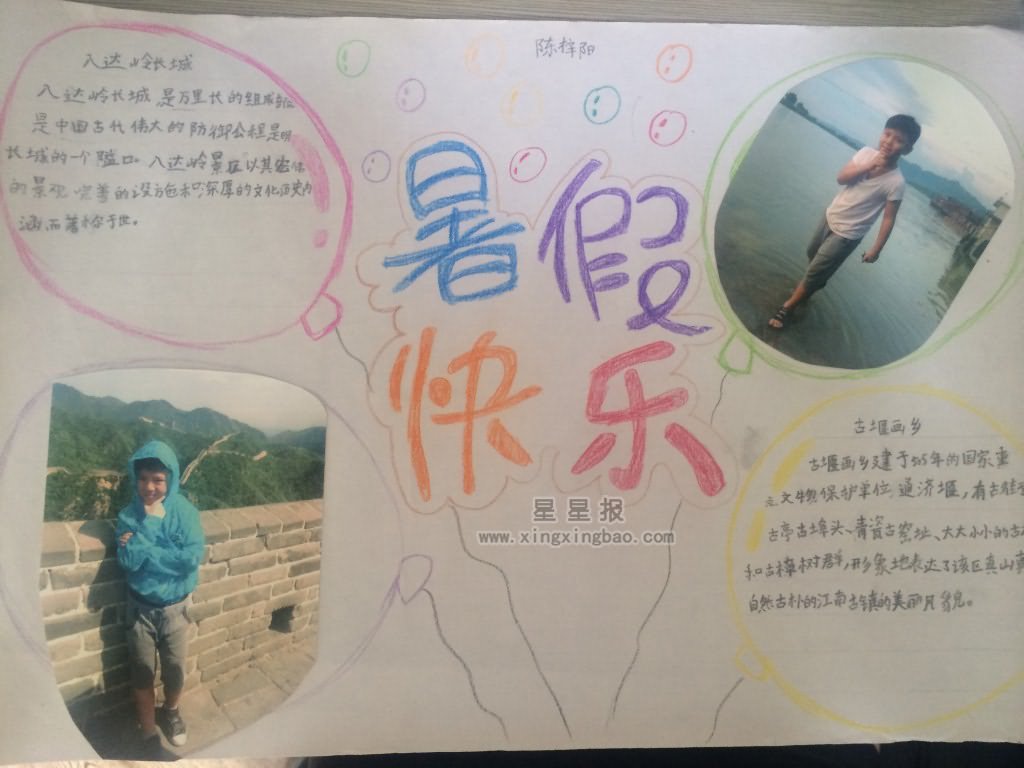 陈梓阳
八达岭长城
八达岭长城,是万里长的组成部
是中国古代伟大的防御工程是明
长城的一个隘口。八达岭景区以其宏伟
的景观、完善的设施和深厚的文化历史内
涵而著称于世。
暑假
快乐
星星报
www.xingxingbao.com
古堰画乡
古堰画乡建于年的国家重
点文物保护单位通济堰,有古
古亭古埠头、青瓷古窑址、大大小小的古
和古樟树群,形象地表达了该区真山真
自然古朴的江南古镇的美丽风貌。